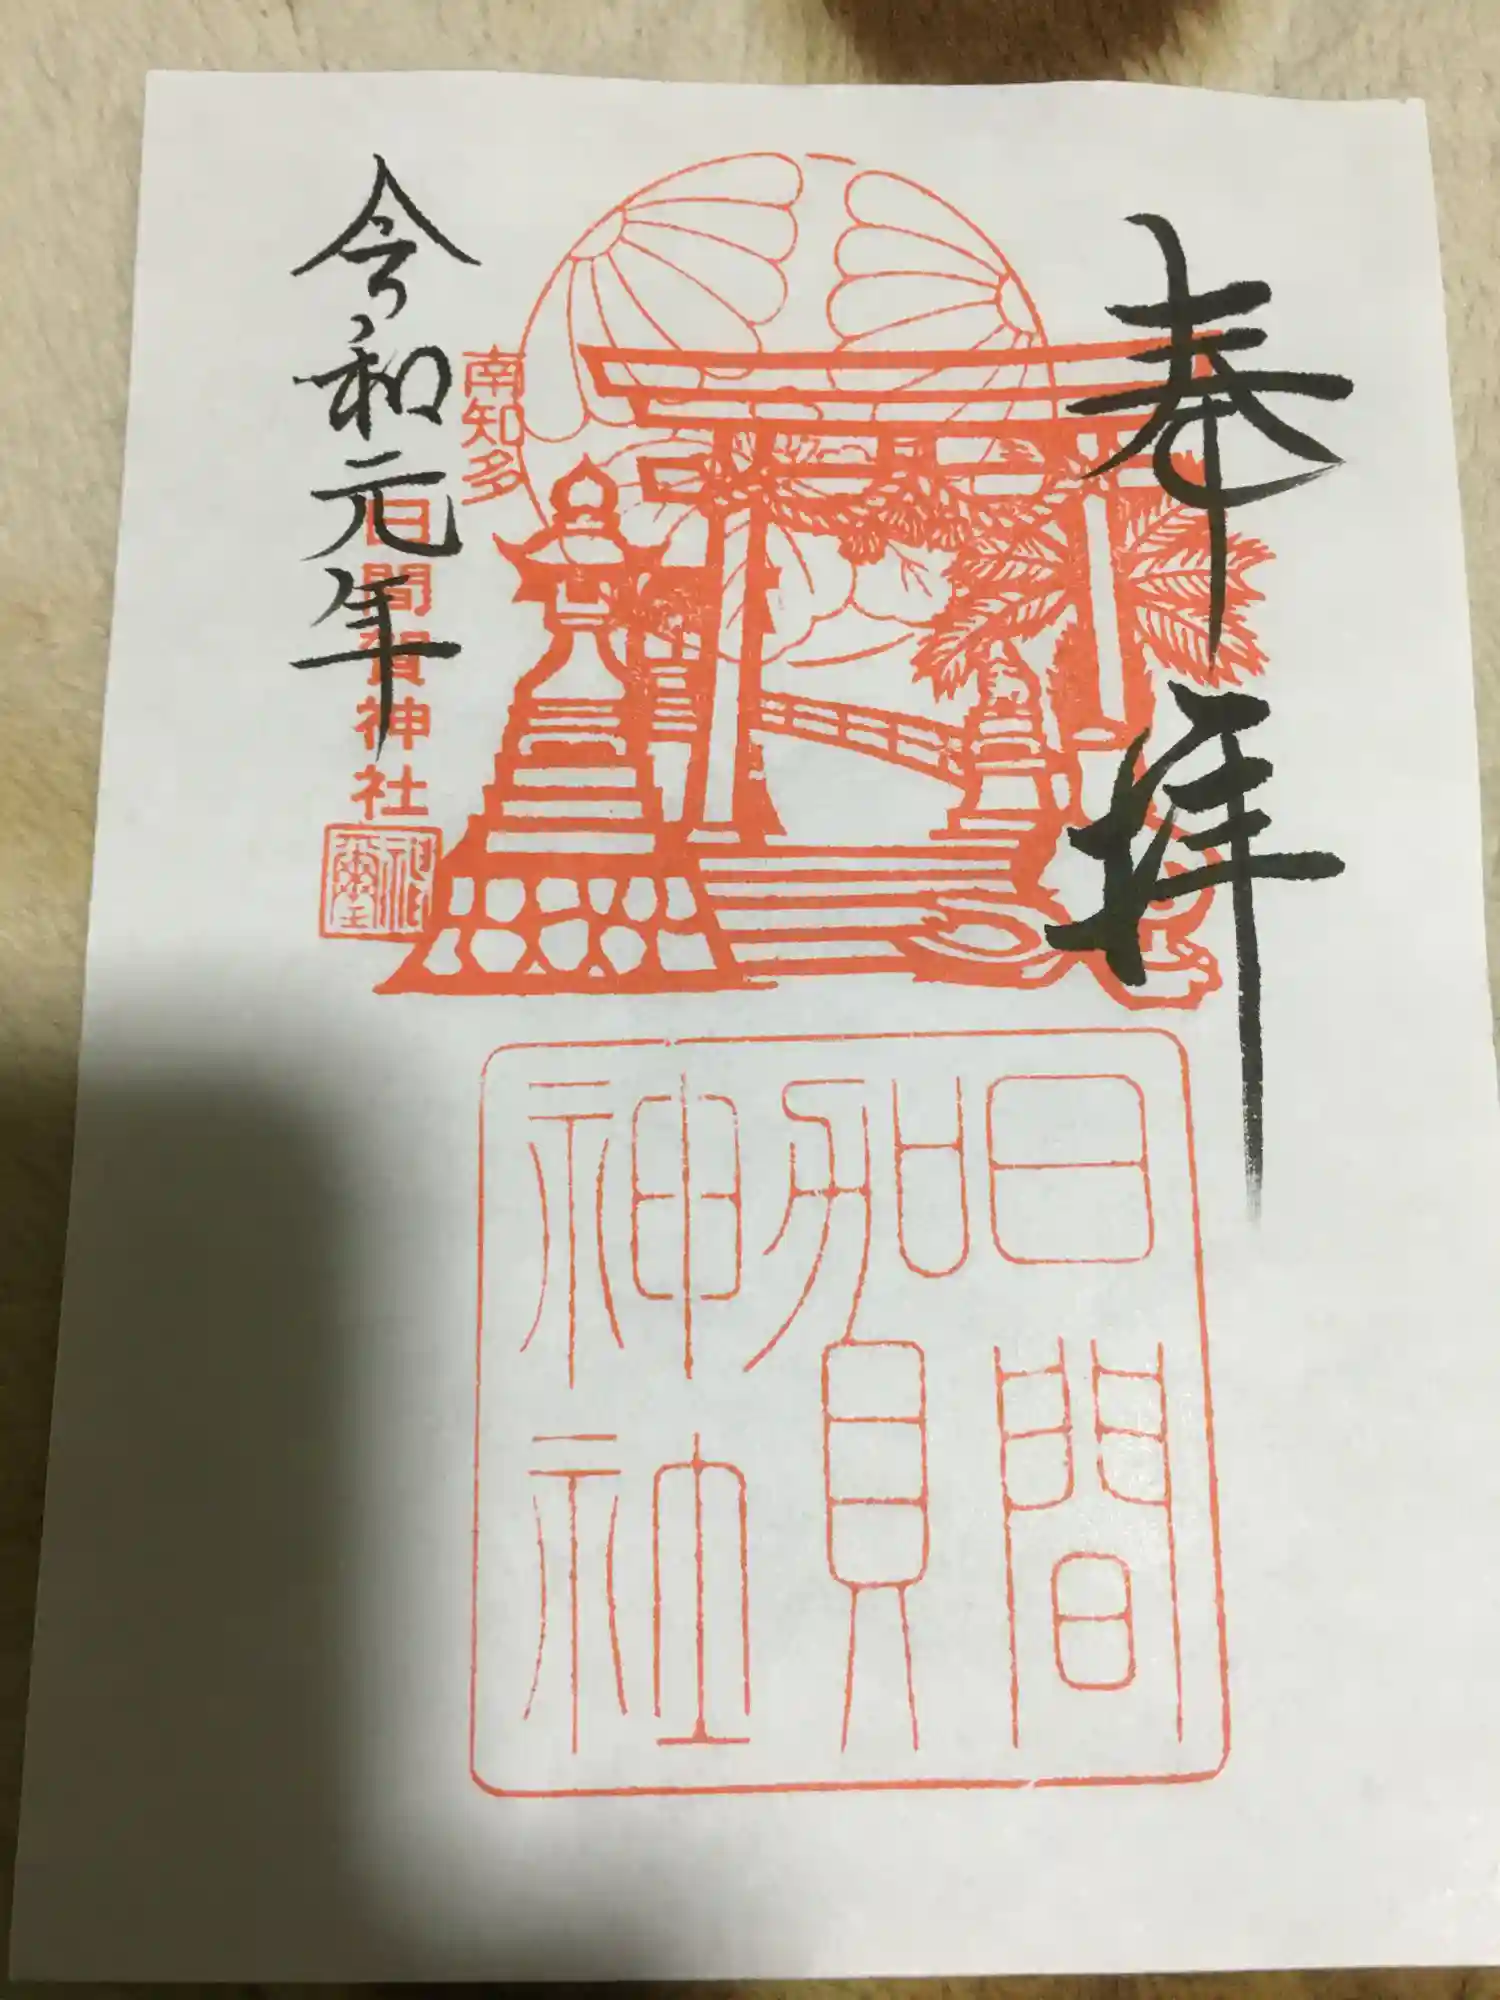 奉拝
南知多
日間賀神社
令和元年
日間
賀
神社